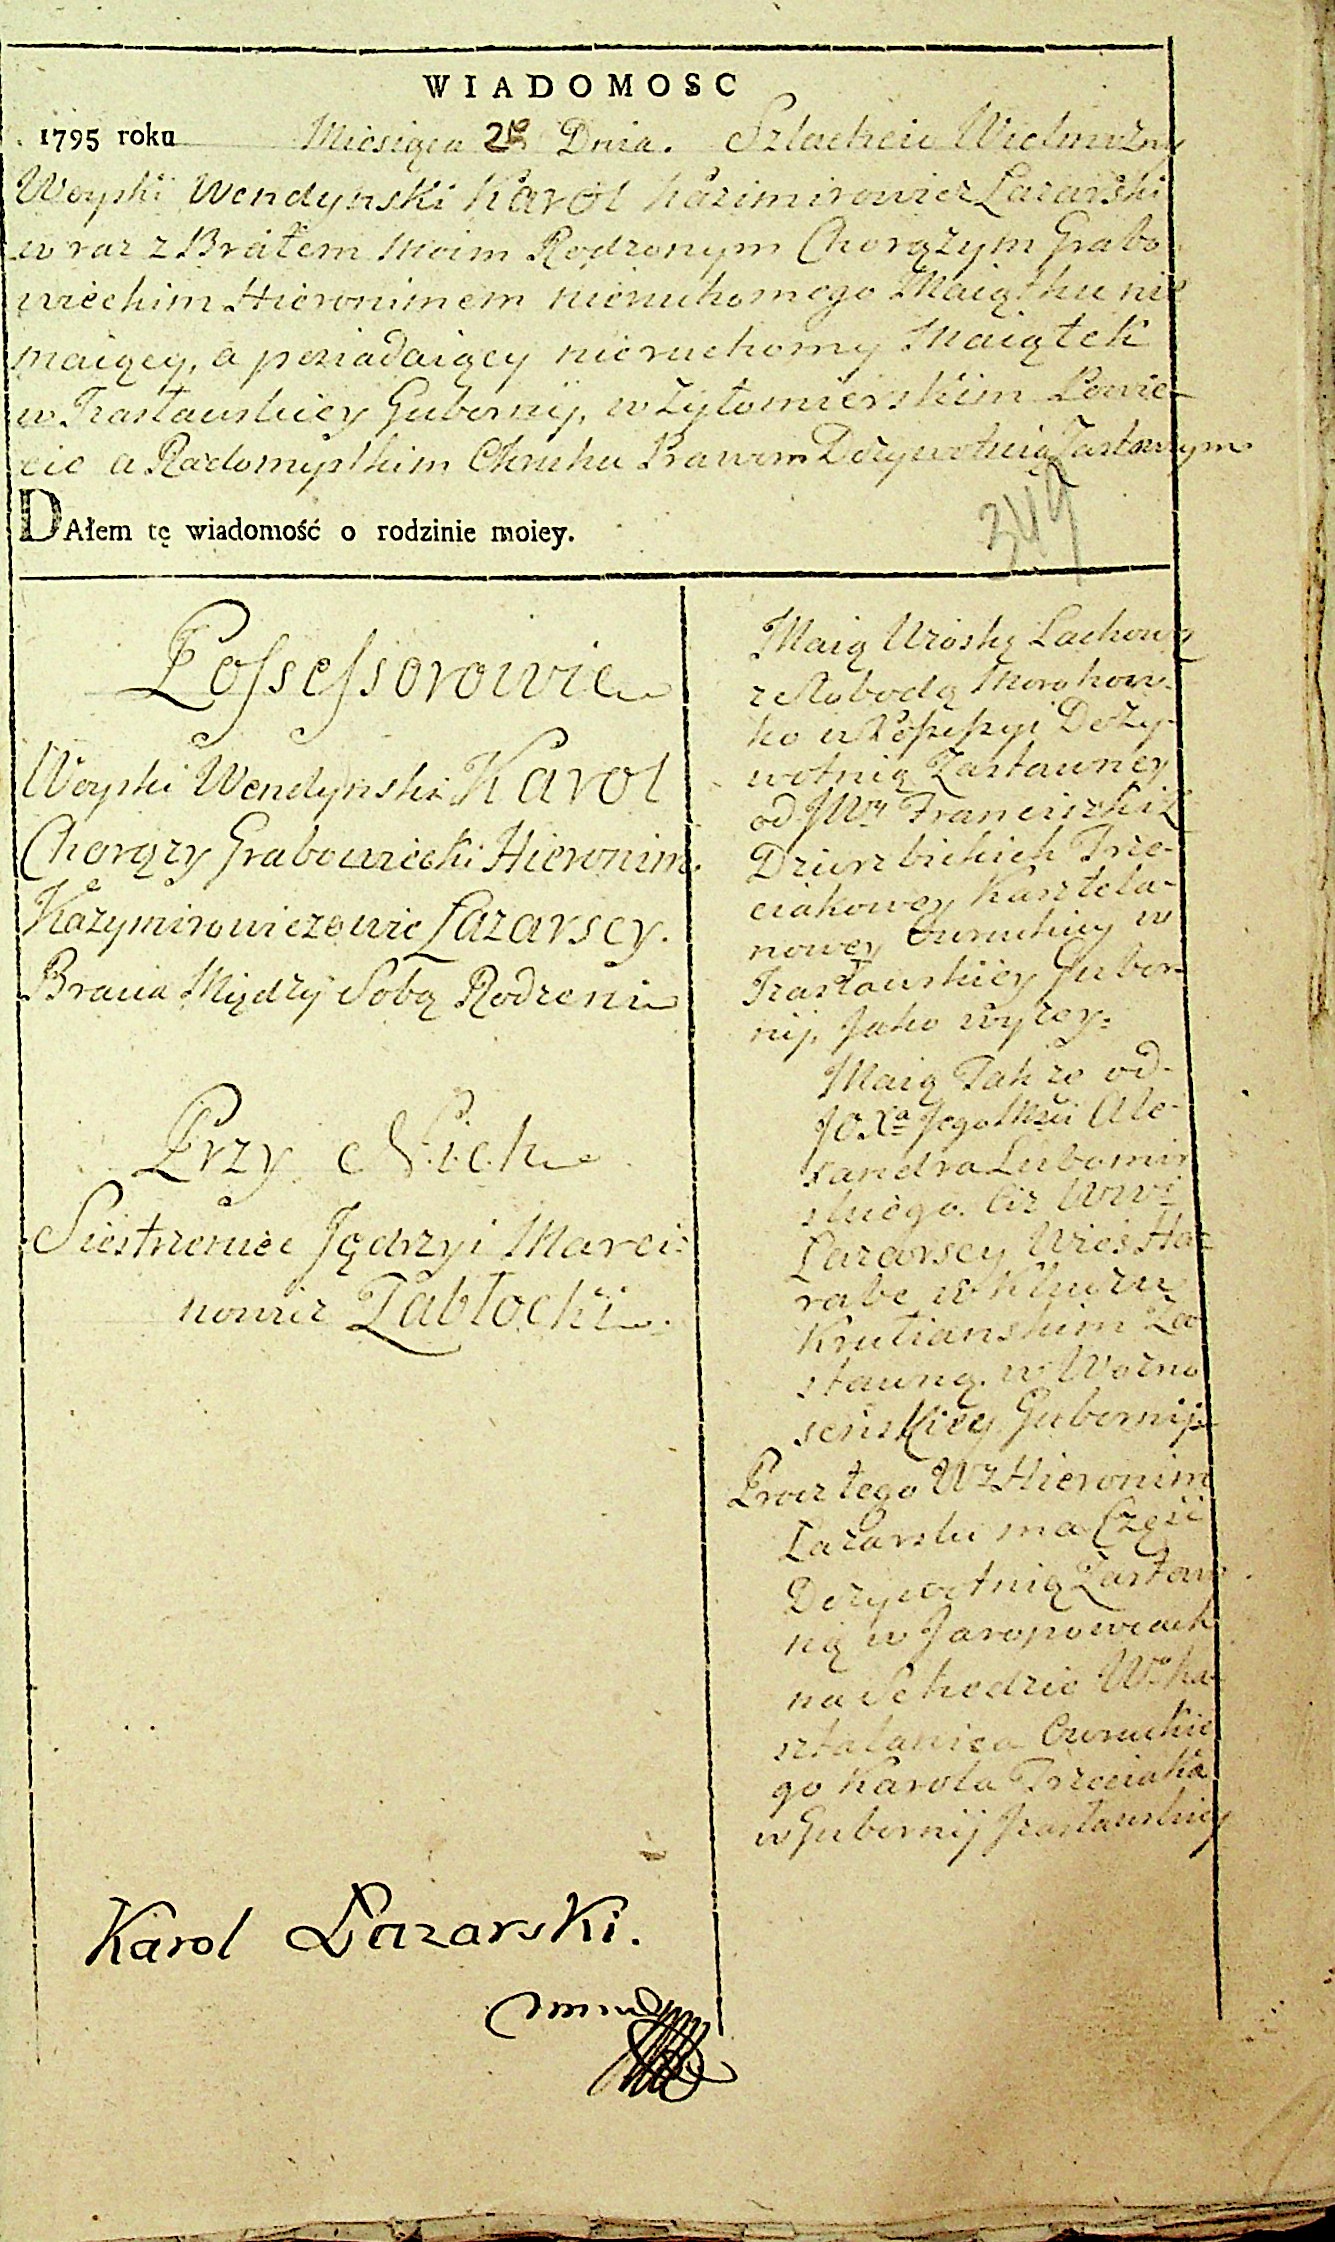 WIADOMOSC
1795 roku Miesiąca 28 Dnia. Szlachcic Wielmożny
Woyski Wendynski Karol Kazimirowicz Łazarski
w raz z Bratem Moim Rodzonym Chorążym Grabo
wieckim Hieronimem nieruchomego Maiątku nie
maiący, a posiadaiący nieruchomy Maiątek
w Izasławskiey Gubernij, w Żytomierskim Powie-
cie a Radomyslkim Okruhu Prawem Dożywotnią Zastawnym
DAłem tę wiadomość o rodzinie moiey.
349
Possessorowie
Woyski Wendynski Karol
Chorąży Grabowiecki Hieronim
Kazymirowiczowie Łazarscy.
Bracia Między Sobą Rodzeni
Przy Nich
Siestrzeniec Jędrzyi Marci:
nowicz Zabłocki
Maią Wioskę Lachową
z Słobodą Morohow-
ko w Possessyi Doży-
wotnią Zastawney
od JWy Franciszki Z
Dzierzbickich Trze-
ciakowey Kasztela-
nowey Owruckiey w
Izasławskiey Guber-
nij, Jako wyzey:
Maią Takze od-
JO Xa Jego Mści Ale-
xandra Lubomir
skiego. Ciz WWi
Łazarscy Wieś Ha-
rabe w Kluczu
Krutianskim Za
stawną. w Wozno
senskiey Gubernij
Procz tego Wy Hieronim
Łazarski ma Część
Dożywotnią Zastaw
ną w Jaropowcach
na Schodzie Wo Ka-
sztalanica Owruckie
go Karola Trzeciaka
w Gubernij Izasławskiey
Karol Łazarski.